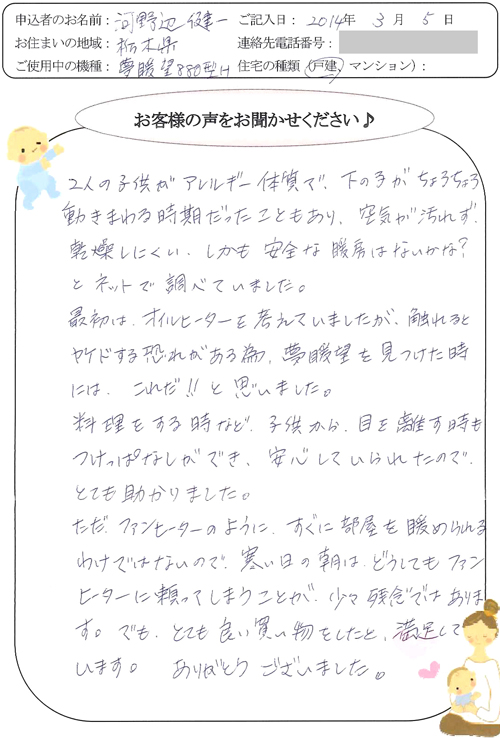 申込者のお名前：河野辺 健一 ご記入日：2014年 3月 5日
お住まいの地域：栃木県 連絡先電話番号：
ご使用中の機種：夢暖望880型H 住宅の種類（戸建、マンション）：
お客様の声をお聞かせください♪
2人の子供がアレルギー体質で、下の子がちょろちょろ
動きまわる時期だったこともあり、空気が汚れず、
乾燥しにくい、しかも安全な暖房はないかな？
とネットで調べていました。
最初は、オイルヒーターを考えていましたが、触れると
ヤケドする恐れがある為、夢暖望を見つけた時
には、これだ!!と思いました。
料理をする時など、子供から、目を離す時も
つけっぱなしができ、安心していられたので、
とても助かりました。
ただ、ファンヒーターのように、すぐに部屋を暖められる
わけではないので、寒い日の朝は、どうしてもファン
ヒーターに頼ってしまうことが、少々残念ではありま
す。でも、とても良い買い物をしたと、満足して
います。 ありがとうございました。